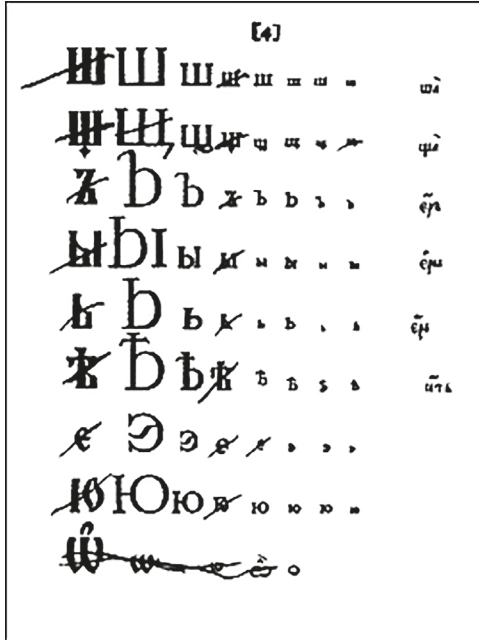 [4]
Ш Ш ш ш ш ш ш ш ша̀
Щ Щ щ щ щ щ щ щ ща̀
Ъ Ъ ъ ъ ъ ъ ъ ъ є҆́ръ
Ы Ы ы ы ы ы ы ы є҆ры̀
Ь Ь ь ь ь ь ь ь є҆́рь
Ѣ Ѣ ѣ ѣ ѣ ѣ ѣ ѣ ꙗ҆́ть
є Э э є є э э э
Ю Ю ю ю ю ю ю ю
Ѿ ѡ о